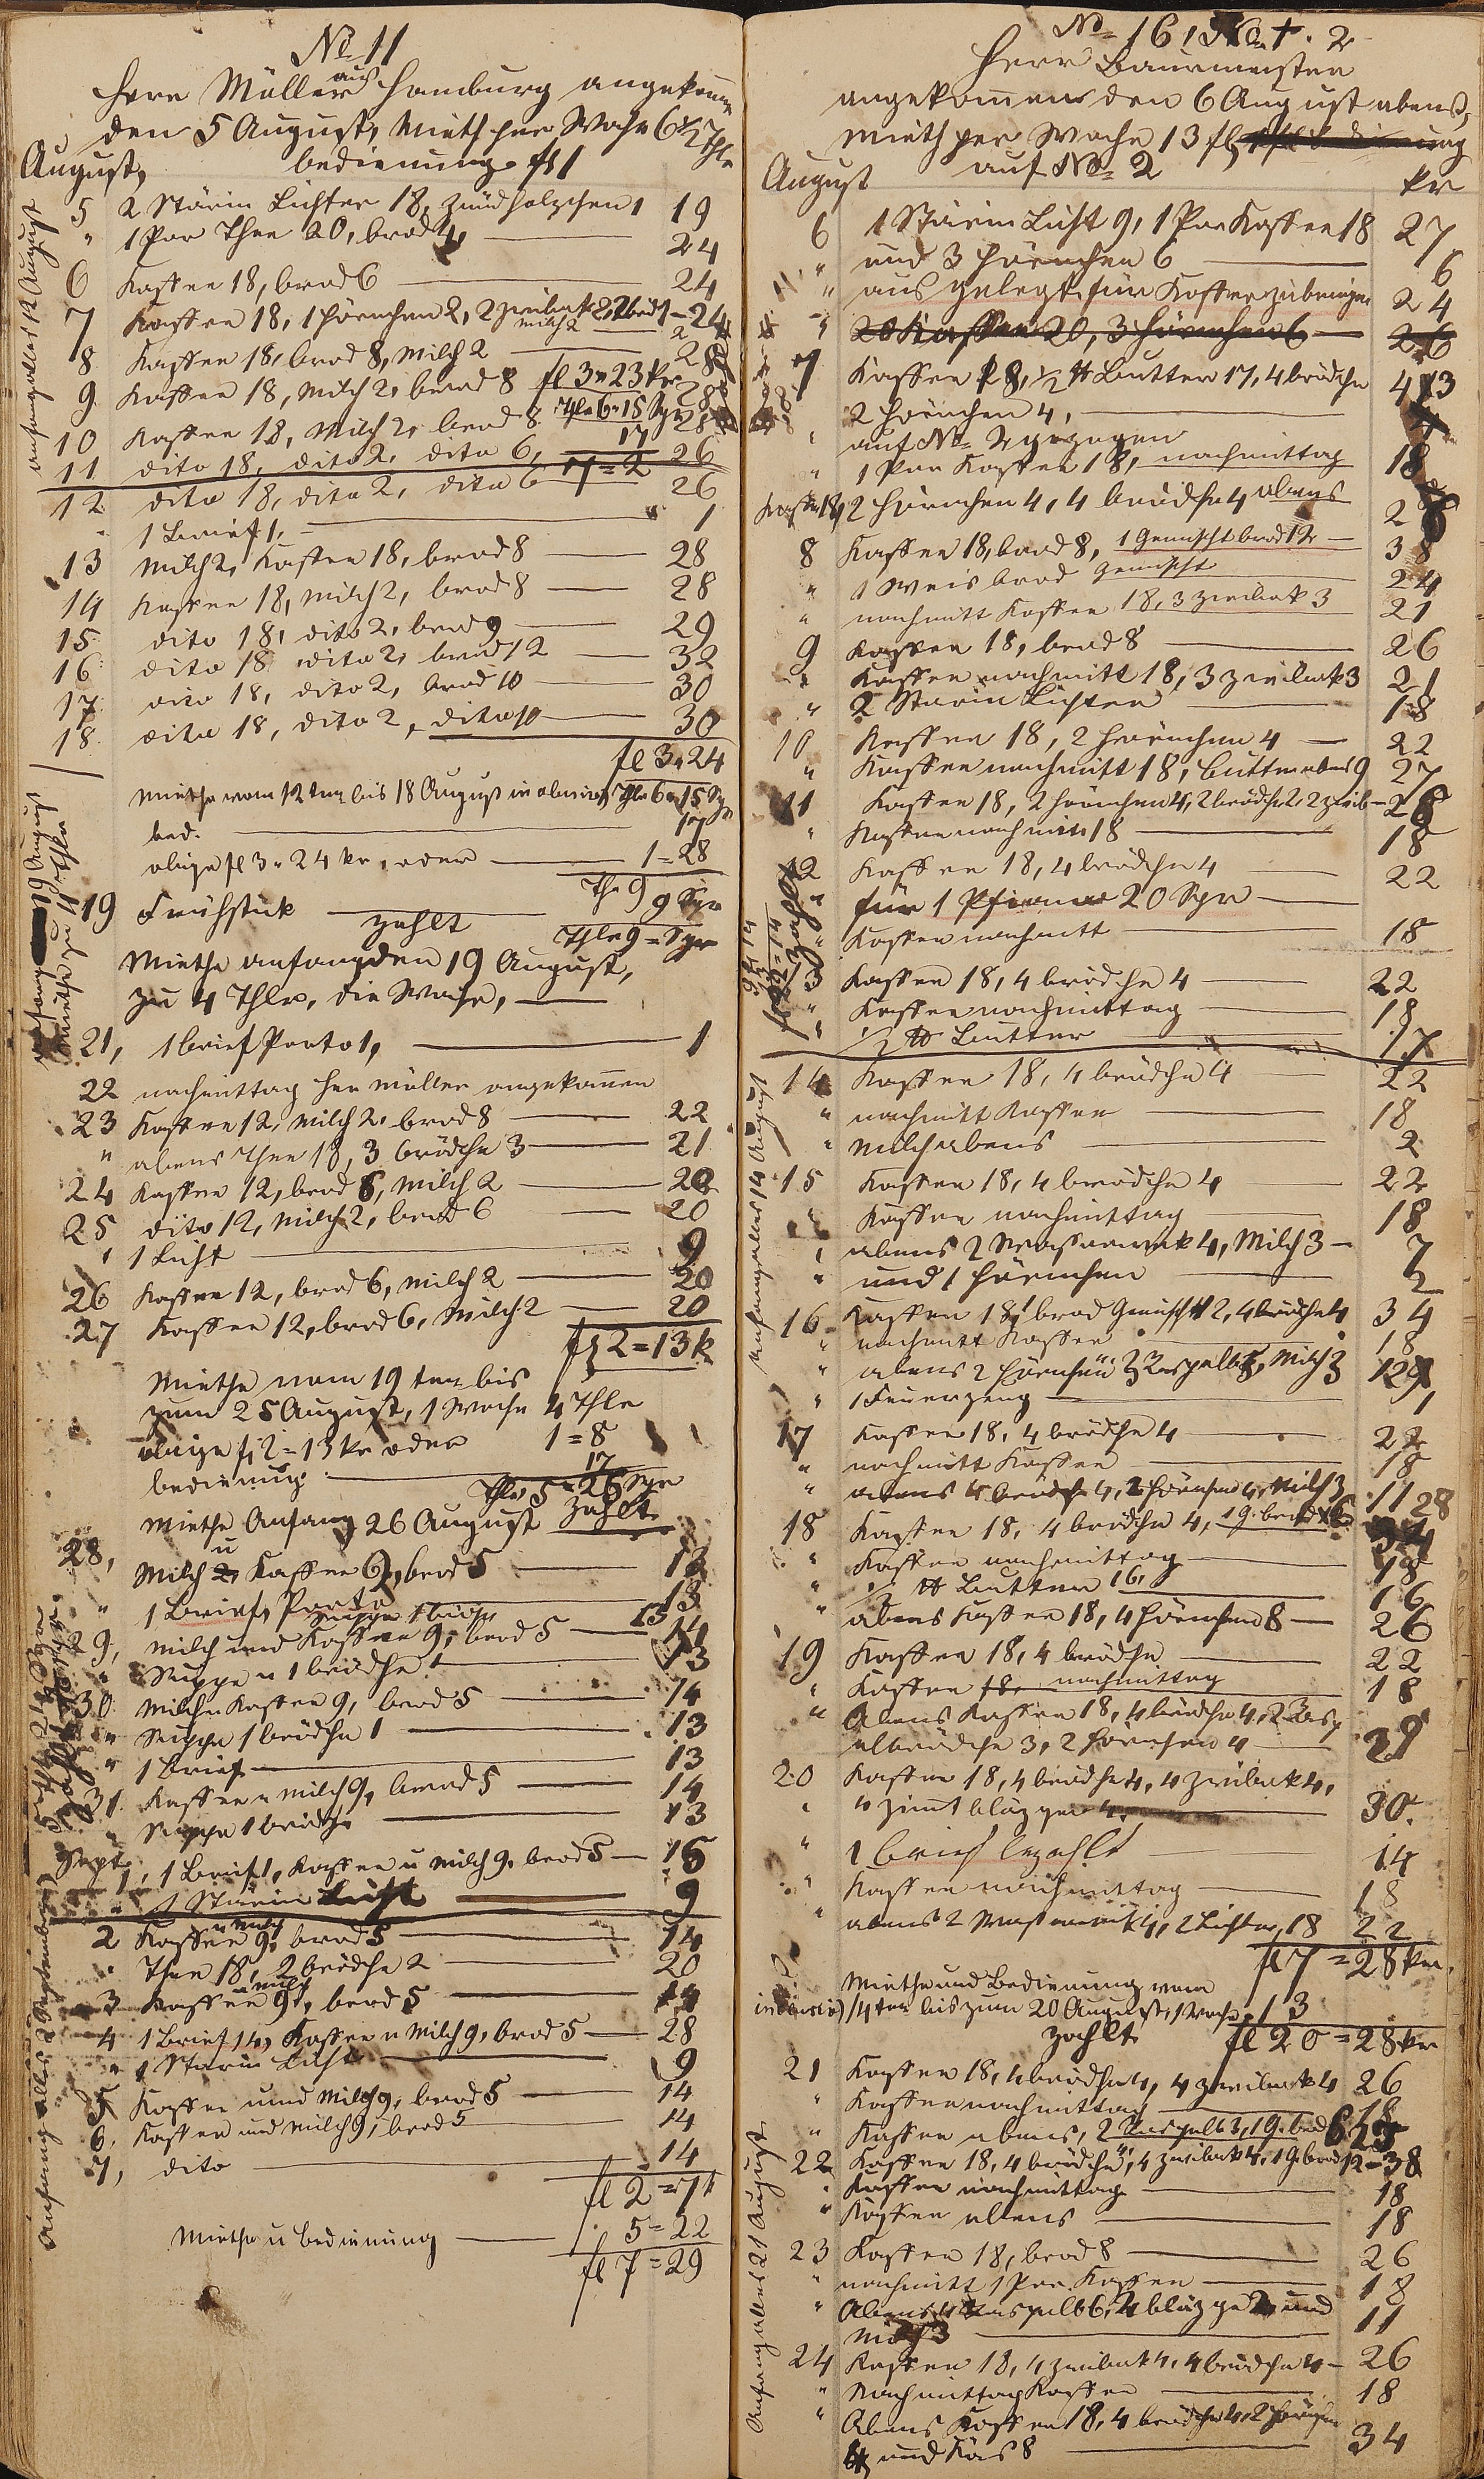 No 11
Herr Müller aus Hamburg angekomen
den 5 August, Mieth per Woche 6 1/2 Thlr
bedienung fl 1
August,
5 2 Stärin Lichter 18, zündholzchen 1 19
" 1 Por Thee 20, brod 4 24
6 Kaffee 18, brod 6 24
7 Kaffee 18, 1 Hörnchen 2, 2 zwiback 2, 2 brod 24
milch 2 2
8 Kaffee 18, brod 8, Milch 2 28
9 Kaffee 18, Milch 2, brod 8 28
fl 3 " 23 kr
10 Kaffee 18, Milch 2, brod 8 28
Thlr 6 " 15 Sgr
17
11 dito 18, dito 2, dito 6, 26
12 dito 18, dito 2, dito 6 26
1 Brief 1, 1
13 Milch 2, Kaffee 18, brod 8 28
14 Kaffee 18, Milch 2, brod 8 28
15 dito 18, dito 2, brod 9 29
16 dito 18 dito 2, brod 12 32
17 dito 18, dito 2, brod 10 30
18 dito 18, dito 2, dito 10 30
fl 3 " 24
Miethe vom 12 ten bis 18 August Thlr 6 " 15 Sgr
bed. 17
obige fl 3 " 24 kr, oder 1 = 28
Th 9 9 Sgr
19 Frühstük
zahlt Thlr 9 = Sgr
Miethe anfang den 19 August,
zu 4 Thlr, die Woche,
21, 1 brief Porto 1, 1
22 nachmittag Herr Müller angekomen
23 Kaffee 12, Milch 2, brod 8 22
" abens Thee 18, 3 brödche 3 21
24 Kaffee 12, brod 8, Milch 2 22
25 dito 12, Milch 2, brod 6 20
" 1 Licht 9
26 Kaffee 12, brod 6, Milch 2 20
27 Kaffee 12, brod 6, Milch 2 20
fl 2 = 13 k
Miethe vom 19 ten bis
zum 25 August, 1 Woche 4 Thlr
obige fl 2 = 13 kr oder 1 = 8
bedienung 17
Thlr 5 = 25 Sgr
Miethe Anfang 26 August zahlt
28, Milch u Kaffee 9, brod 5
" 1 Brief, Porto 13
29, Milch und Kaffee 9, brod 5 14
" Suppe u 1 brödche 1 13
30 Milch u Kaffee 9, brod 5 14
" Suppe 1 brödche 1 13
" 1 Brief 13
31. Kaffee u Milch 9, brod 5 14
" Suppe 1 brödche 13
Sept
1, 1 Brief 1, Kaffee u Milch 9, brod 5 15
" 1 Stärin Licht 9
2 Kaffee u Milch 9, brod 5 14
" Thee 18, 2 brödche 2 20
3 Kaffee u milch 9, brod 5 14
4 1 Brief 14, Kaffee u Milch 9, brod 5 28
" 1 Starin Licht 9
5 Kaffee und Milch 9, brod 5 14
6. Kaffee und Milch 9, brod 5 14
7, dito 14
fl 2 = 7 k
Miethe u bedienung 5 = 22
fl 7 = 29
anfang alles 12 August
anfang 19 August
Miethe zu 4 Thlr
zahlt
Anfang alles 2 September
No 16, No 1. 2
Herr Baurmeister
angekomen den 6 August abens,
Mieth per Woche 13 fl
auf No 2
August kr
6 1 Stärin Licht 9, 1 Por Kaffee 18 27
" und 3 Hörnchen 6 6
" aus gelegt für Koffer zu bringen 24
" 20 Kaffee 20, 3 Hörnchen 6 26
7 Kaffee 18, 1/2 ℔ Butter 17, 4 brödche 43
2 Hörnchen 4,
" auf No 2 gezogen
" 1 Por Kaffee 18, nachmittag 18
Kaffe 18, 2 Hörnchen 4, 4 brödche 4 abens 26
8 Kaffee 18, brod 8, 1 Gemischt brod 12 38
" 1 Weis brod gemischt 24
" nachmitt Kaffee 18, 3 zwiback 3 21
9 Kaffee 18, brod 8 26
" Kaffee nachmitt 18, 3 zwiback 3 21
" 2 Starin Lichter 18
10 Kaffee 18, 2 Hörnchen 4 22
" Kaffee nachmitt 18, Butter abens 9 27
11 Kaffee 18, 2 Hörnchen 4, 2 brödche 2, 2 zwib 26
" Kaffee nachmitt 18 18
12 Kaffee 18, 4 brödche 4 22
" für 1 20 Sgr
" Kaffee nachmitt 18
13 Kaffee 18, 4 brödche 4 22
" Kaffee nachmittag 18
" 1/2 ℔ Butter 17
14 Kaffee 18, 4 brödche 4 22
" nachmitt Kaffee 18
" Milch abens 2
15 Kaffee 18, 4 brödche 4 22
" Kaffee nachmittag 18
" abens 2 Wasserweck 4, Milch 3 7
" und 1 Hörnchen 2
16 Kaffee 18, 1 brod Gemischt 12, 4 brödche 4 34
" nachmitt Kaffee 18
" abens 2 Hörnchen, Milch 3
" 1 Feuerzeug 1
17 Kaffee 18, 4 brödche 4 22
" nachmitt Kaffee 18
" abens 4 brödche 4, 2 Hörnchen 4, Milch 3 11
18 Kaffee 18, 4 brödche 4, 1 g. brod 6 28
" Kaffee nachmittag 18
" 1/2 ℔ Butter 16, 16
" abens Kaffee 18, 4 Hörnchen 8 26
19 Kaffee 18, 4 brödche 22
" Kaffee 18, nachmittag 18
" Abens Kaffee 18, 4 brödche 4, 2
brödche 3, 2 Hörnchen 4 29
20 Kaffee 18, 4 brödche 4, 4 zwiback 4,
" 4 zimt bläzger 4. 30.
" 1 brief bezahlt 14
" Kaffee nachmittag 18
" abens 2 Wasserweck 4, 2 Lichter 18 22
fl 7 = 28 kr.
Miethe und Bedienung vom
14 ten bis zum 20 August, 1 Woche 13
zahlt fl 20 = 28 kr
21 Kaffee 18, 4 brödche 4, 4 zwiback 4 26
" Kaffee nachmittag 18
" Kaffee abens, 2 3, 1 g. brod 6
22 Kaffee 18, 4 brödche 4, 4 zwiback 4, 1 g. brod 12 - 38
" Kaffee nachmittag 18
" Kaffee abens 18
23 Kaffee 18, brod 8 26
" nachmitt 1 Por. Kaffee 18
" Abens 6, 2 bläzge 2 und
Milch 3 11
24 Kaffee 18, 4 zwiback 4, 4 brödche 4 26
" Nachmittag Kaffee 18
" Abens Kaffee 18, 4 brödche 4, 2 Hörnchen
4 und Käs 8 34
zahlt
Anfang alles 14 August
Anfang alles 21 August